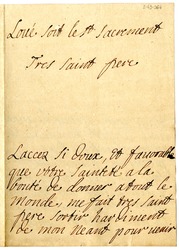 Loué soit le st sacrement
Tres saint pere
Laccez si doux, et favorable
que votre sainteté a la
bonté de donner a tout le
monde, me fait tres saint
pere sortir hardiment
de mon neant pour venir